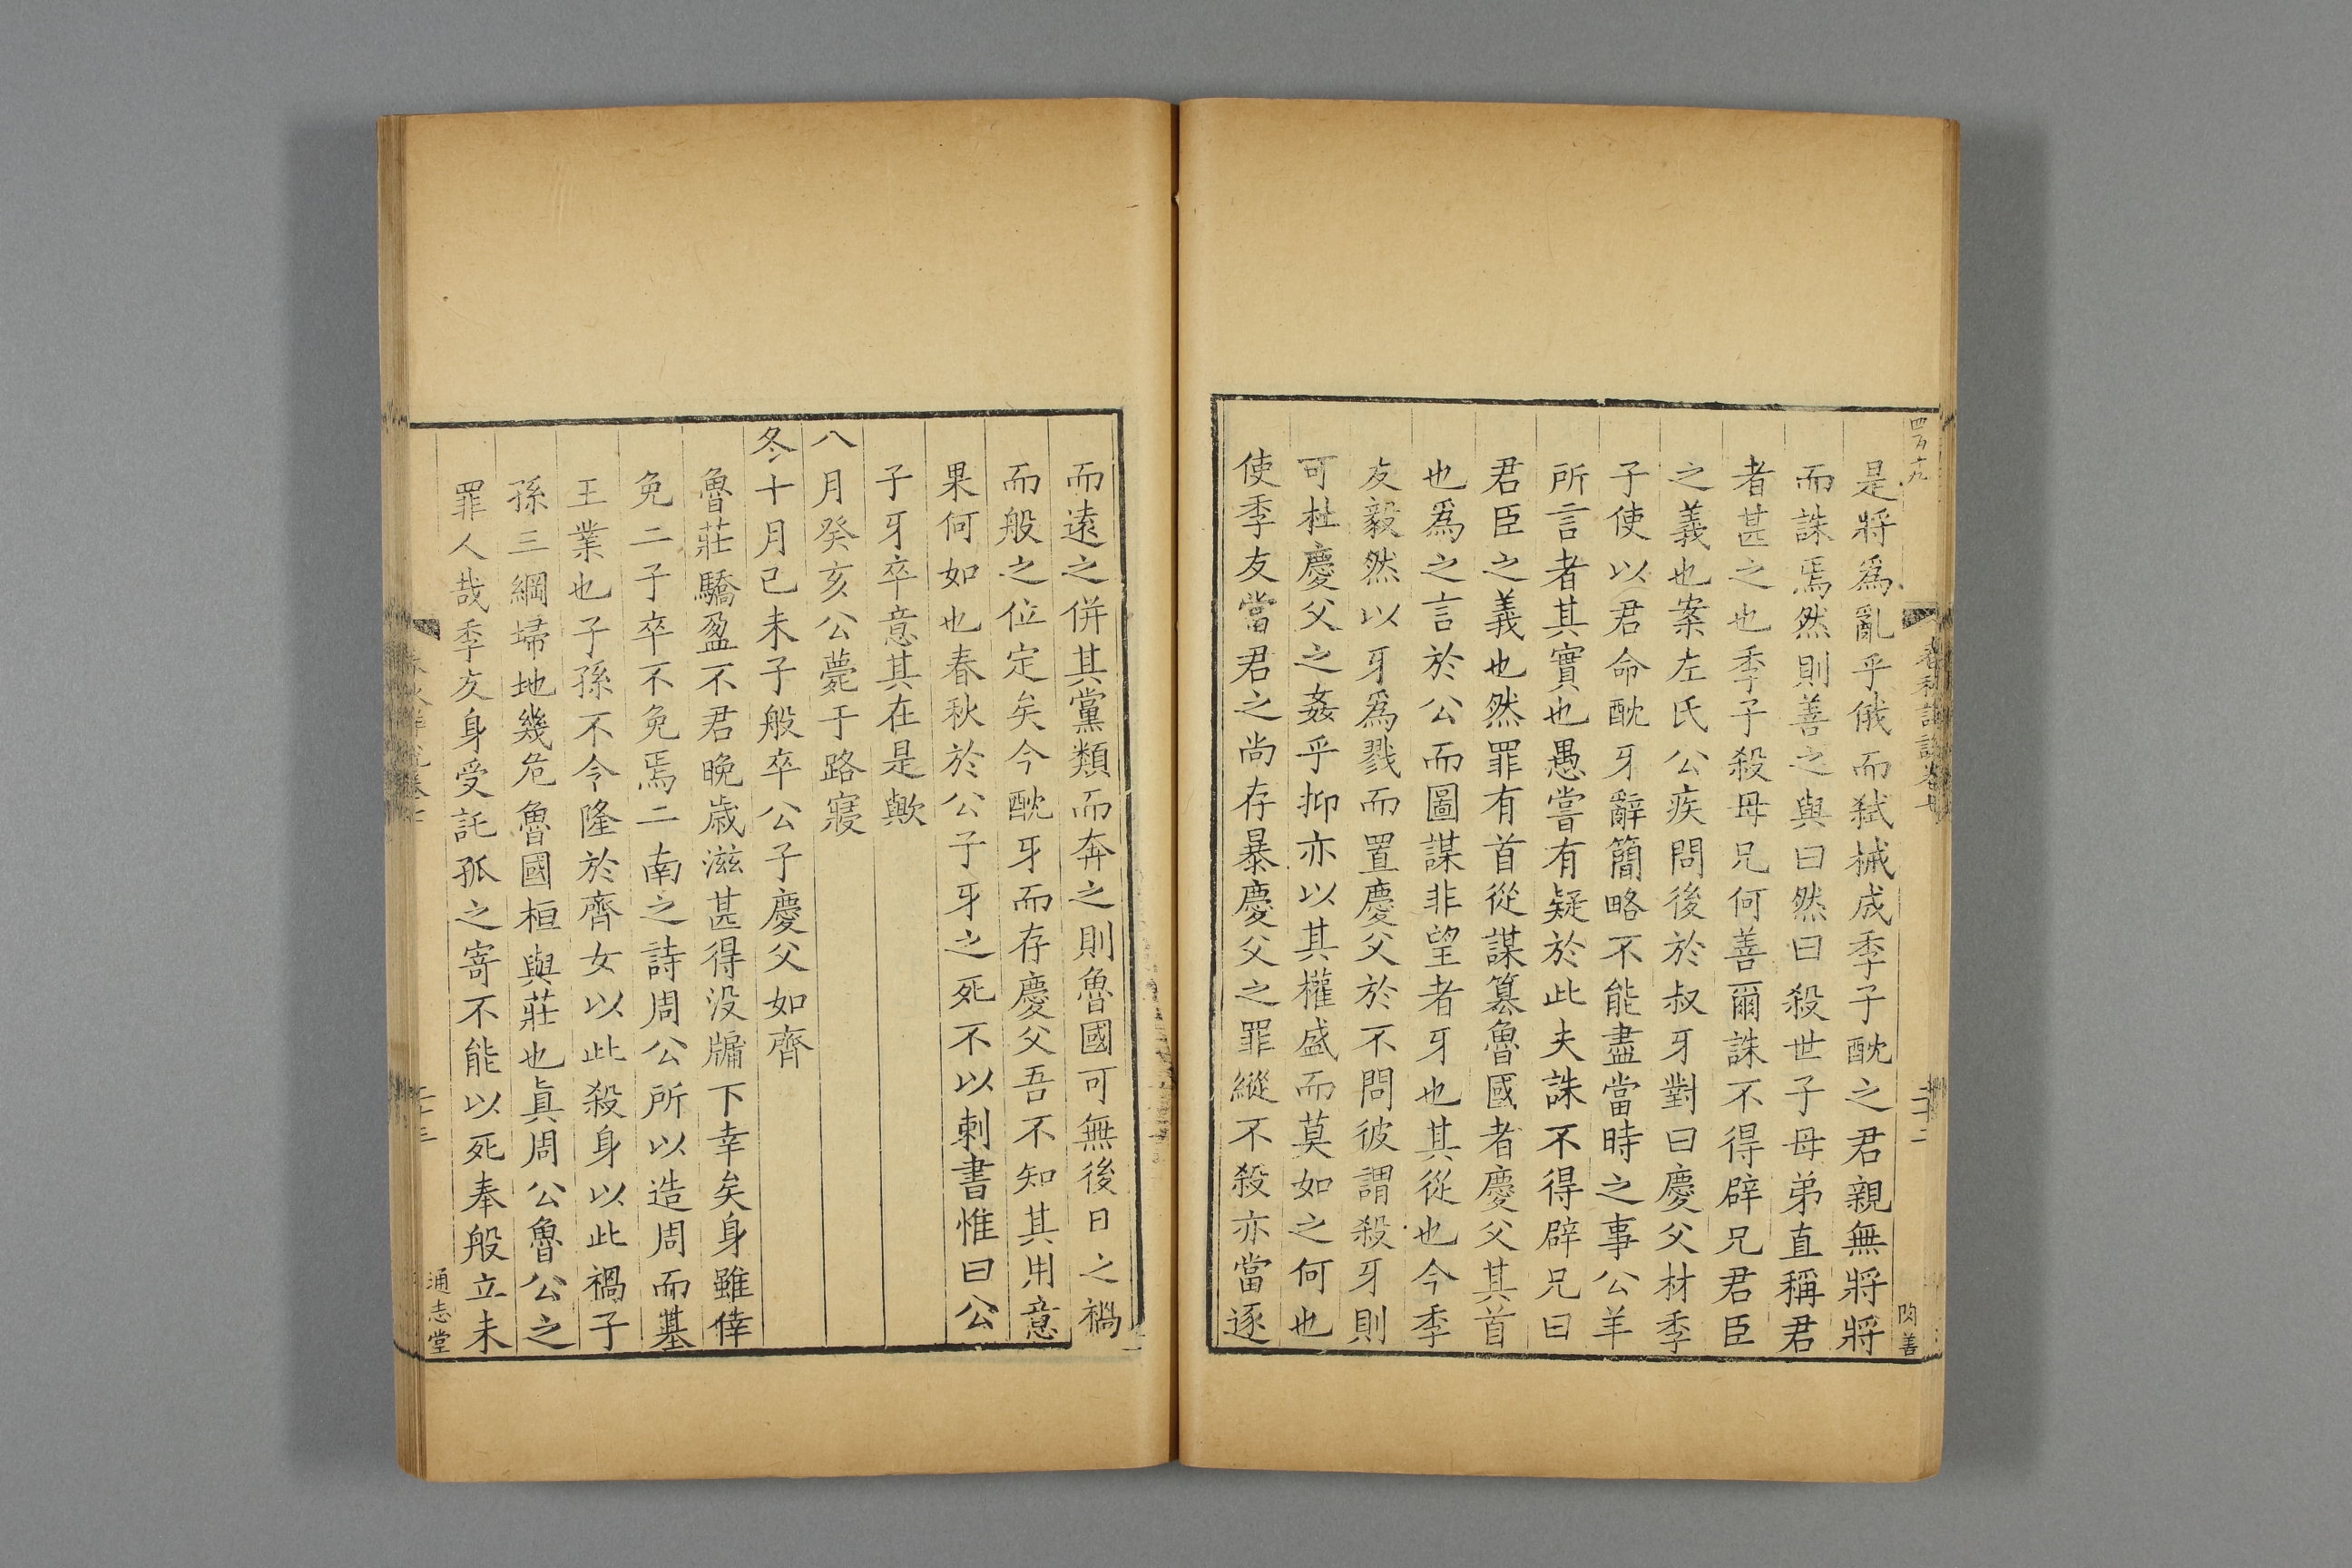 是將爲亂乎俄而弑械成季子酖之君親無將將
而誅焉然則善之與曰然曰殺世子母弟直稱君
者甚之也季子殺母兄何善爾誅不得辟兄君臣
之義也案左氏公疾問後於叔牙對曰慶父材季
子使以君命酖牙辭簡略不能盡當時之事公羊
所言者其實也愚嘗有疑於此夫誅不得辟兄曰
君臣之義也然罪有首從謀簒魯國者慶父其首
也爲之言於公而圖謀非望者牙也其從也今季
友毅然以牙爲戮而置慶父於不問彼謂殺牙則
可杜慶父之姦乎抑亦以其權盛而莫如之何也
使季友當君之尚存暴慶父之罪縱不殺亦當逐
而遠之併其黨類而奔之則魯國可無後日之禍
而般之位定矣今酖牙而存慶父吾不知其用意
果何如也春秋於公子牙之死不以刺書惟曰公
子牙卒意其在是歟
八月癸亥公薨于路寢
冬十月己未子般卒公子慶父如齊
魯莊驕盈不君晚歲滋甚得没牖下幸矣身雖倖
免二子卒不免焉二南之詩周公所以造周而基
王業也子孫不令隆於齊女以此殺身以此禍子
孫三綱埽地幾危魯國桓與莊也眞周公魯公之
罪人哉季友身受託孤之寄不能以死奉般立未
通志堂